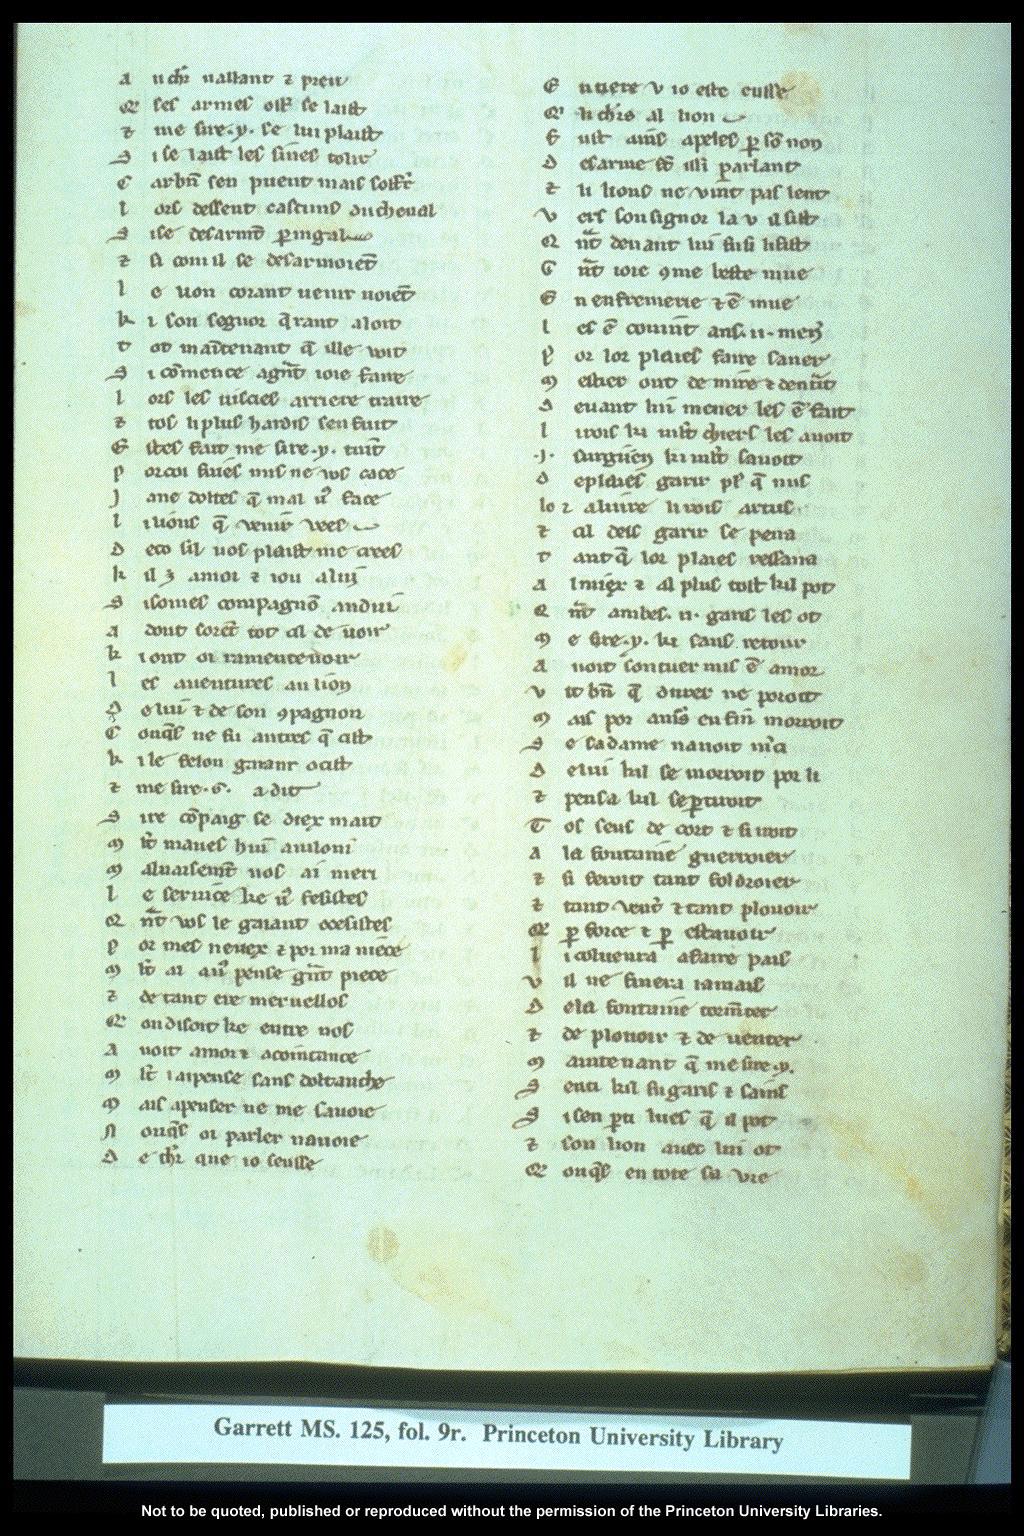 A u chr uallant ⁊ preu
Q̃ ses armes ost se laist
⁊ me sire .y. se lui plaist
S i se laist les sines tolir
C arbn̄ sen puent mais soffrir
L ors dessent cascuns du cheual
S i se desarmēt p̱ ingal
⁊ si com il se desarmoiēt
L e lion corant uenir uoiēt
K i son segnor q̄rant aloit
T ot maītenant q̄ ille uoit
S i cōmence agn̄t ioie faire
L ors les uiscies arriere traire
⁊ tos li plus hardis sen fuit
E stes fait me sire .y. tuit
P orcoi fuies nus ne vos cace
J a ne dottes q̄ mal uꝰ face
L i lions q̄ venir vees
D eco sil uos plaist me crees
K il ⁊ amoi ⁊ iou a lui
S i somes compagnō andui
A dont sorēt tot cil de uoir
K i ont oi ramenteuoir
L es auentures au lion
D e lui ⁊ de son ꝯpagnon
C onq̄s ne fu autres q̄ cist
K i le felon gaiant ocist
⁊ me sire .G. a dit
S ire cōpaig se diex mait
M lt̄ maues hui auiloni
M aluaisemēt uos ai meri
L e seruice ke uꝰ fesistes
Q̄ nt̄ vos le gaiant ocesistes
P or mes neuex ⁊ por ma niece
M lt̄ ai a uꝰ pense gn̄t piece
⁊ de tant ere meruellos
Q̄ on disoit ke entre nos
A uoit amor ⁊ acointance
M lt̄ i ai pense sans dottanche
M ais apenser ne me sauoie
N onq̄s oi parler nauoie
D e chr que io seusse
E n tiere v io este eusse
Q̄ li chrs al lion
E ust auns apeles p̱ sō non
D esarme sē issi parlant
⁊ li lions ne vint pas lent
V ers son signor la v il sist
Q nt̄ deuant lui fu si li fist
G nt̄ ioie ꝯme beste mue
E n enfremerie ⁊ ē mue
L es ē couint ans .ii. mener
P or lor plaies faire saner
M estier ont de mire ⁊ dentrait
D euant lui mener les ē fait
L i rois ki mlt̄ chiers les auoit
.J. surgien ki mlt̄ sauoit
D e plaies garir plꝰ q̄ nus
lo ⁊ a luire li rois artus
⁊ cil dels garir se pena
T antq̄ lor plaies ressana
A l miex ⁊ al plus tost kil pot
Q nt̄ ambes .ii. garis les ot
M e sire .y. ki sans retour
A uoit son cuer mis ē amor
V it bn̄ q̄ durer ne poroit
M ais por amōs en fin morroit
S e sa dame nauoit mꝰci
D e lui kil se morroit por li
⁊ pensa kil se p̱tiroit
T os seus de cort ⁊ si iroit
A la fontaine guerroier
⁊ si feroit tant foldroier
⁊ tant venter ⁊ tant plouoir
Q̄ p̱ force ⁊ p̱ estauoir
L i coluenra a faire pais
V il ne finera iamais
D e la fontaine tormēter
⁊ de plouoir ⁊ de uenter
M aintenant q̄ me sire .y.
S enti kil fu garis ⁊ sains
S i sen pti lues q̄ il pot
⁊ son lion auec lui ot
Q̄ onq̄s en tote sa vie
Garrett MS. 125, fol. 9r. Princeton University Library
Not to be quoted, published or reproduced without the permission of the Princeton University Libraries.